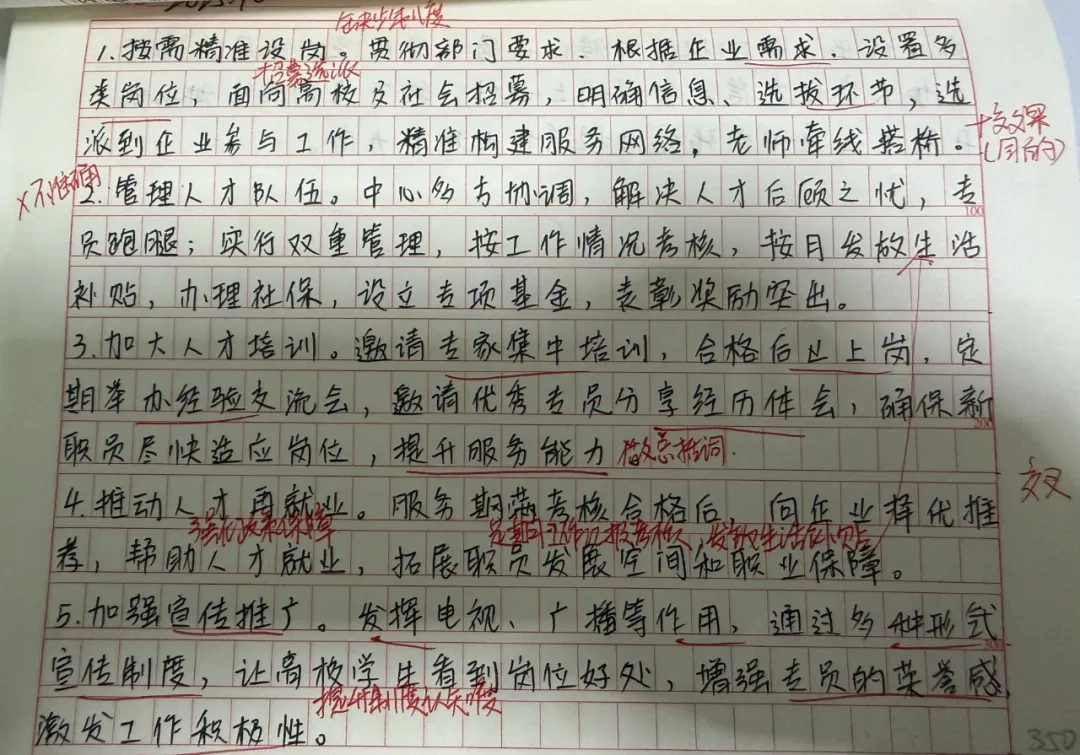 1.按需精准设岗。贯彻部门要求.根据企业需求.设置多
招募选派
类岗位，面向高校及社会招募，明确信息、选拔环节，选
派到企业参与工作，精准构建服务网络，老师牵线搭桥。
+效果
(目的)
×不准确
2.管理人才队伍。中心多方协调，解决人才后顾之忧，专
100
员跑腿；实行双重管理，按工作情况考核，按月发放生活
补贴，办理社保，设立专项基金，表彰奖励突出。
3.加大人才培训。邀请专家集中培训，合格后上岗，定
期举办经验交流会，邀请优秀专员分享经历体会，确保新
200
职员尽快适应岗位，提升服务能力 做总括词.
4.推动人才再就业。服务期满考核合格后，向企业择优推
强化政策保障
荐，帮助人才就业，拓展职员发展空间和职业保障。
5.加强宣传推广。发挥电视、广播等作用，通过多种形式
300
宣传制度，让高校学生看到岗位好处，增强专员的荣誉感，
提升制度认知度
激发工作积极性。
350